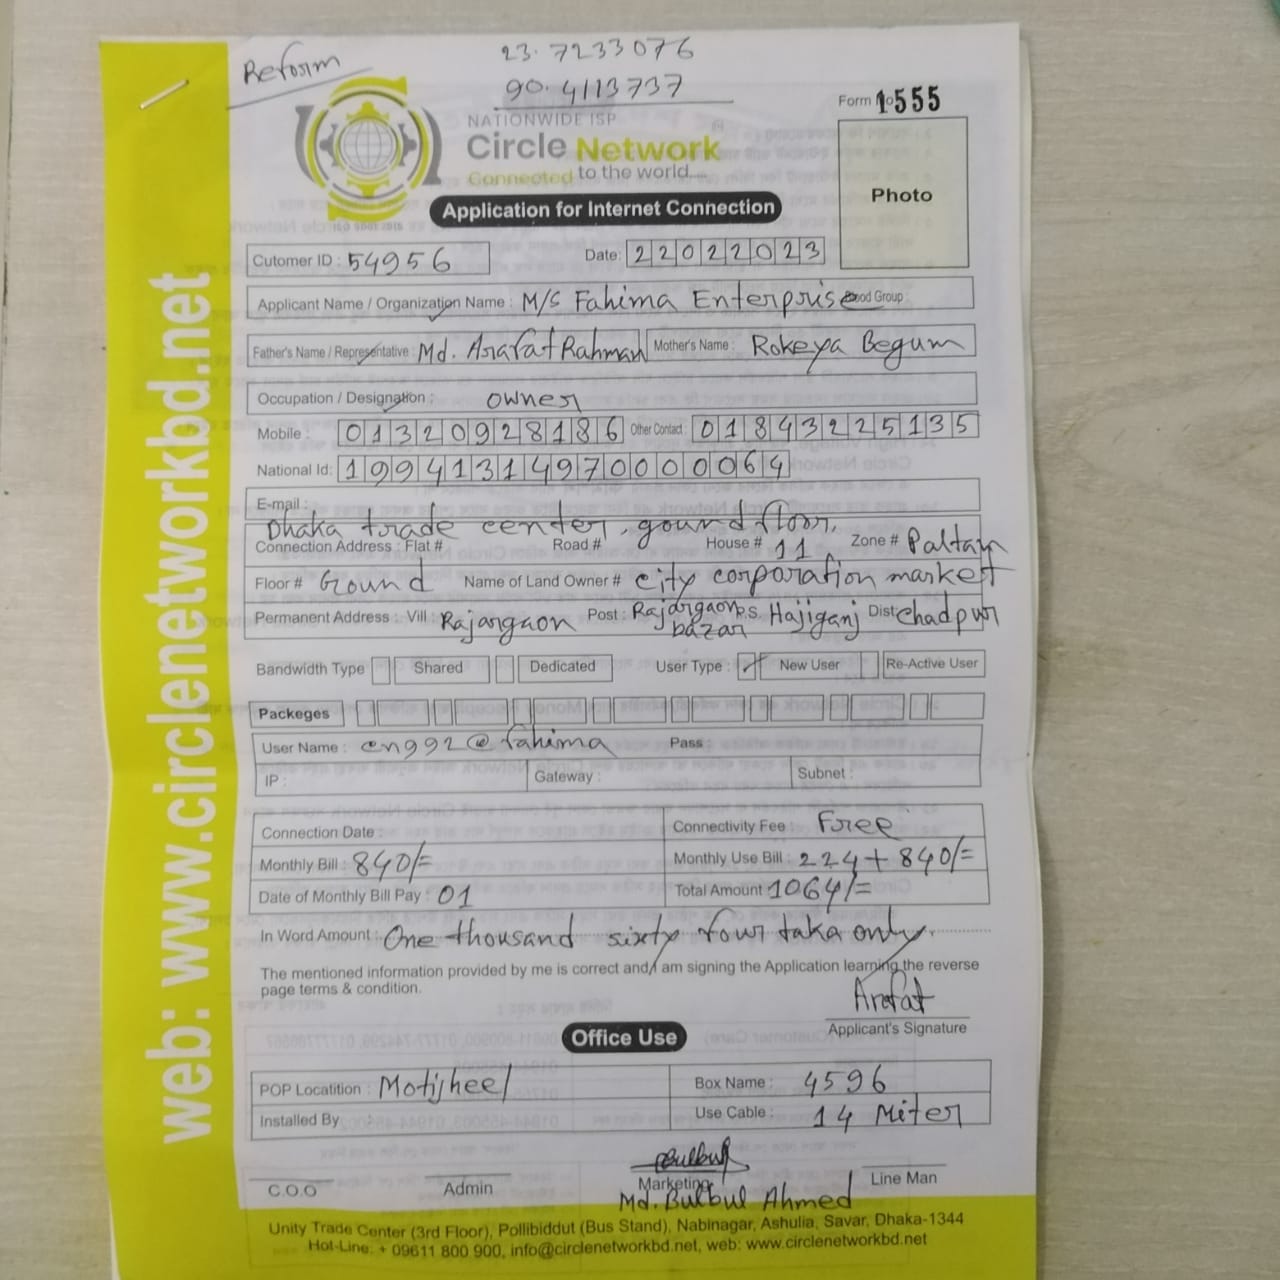 Reform
23.7233076
90.4113737
Form No 1555
NATIONWIDE ISP
Circle Network
Connected to the world....
ISO 9001:2015
Photo
Application for Internet Connection
Cutomer ID : 54956 Date: 22022023
Applicant Name / Organization Name : M/S Fahima Enterprise Blood Group :
Father's Name / Representative : Md. Arafat Rahman Mother's Name : Rokeya Begum
Occupation / Designation : owner
Mobile : 01320928186 Other Contact : 01843225135
National Id: 19941314970000064
E-mail :
Dhaka trade center, gound floor,
Connection Address : Flat # Road # House # 11 Zone # Paltan
Floor # Ground Name of Land Owner # city corporation market
Permanent Address : Vill : Rajargaon Post : Rajargaon bazar P.S. Hajiganj Dist: chadpur
Bandwidth Type Shared Dedicated User Type : ✓ New User Re-Active User
Packeges
User Name : eng92@fahima Pass :
IP : Gateway : Subnet :
Connection Date : Connectivity Fee : Free
Monthly Bill : 840/= Monthly Use Bill : 224 + 840/=
Date of Monthly Bill Pay : 01 Total Amount 1064/=
In Word Amount : One thousand sixty four taka only.
The mentioned information provided by me is correct and I am signing the Application learning the reverse
page terms & condition.
Arafat
Applicant's Signature
Office Use
POP Locatition : Motijheel Box Name : 4596
Installed By Use Cable : 14 Miter
Bulbul
C.O.O Admin Marketing Line Man
Md. Bulbul Ahmed
Unity Trade Center (3rd Floor), Pollibiddut (Bus Stand), Nabinagar, Ashulia, Savar, Dhaka-1344
Hot-Line: + 09611 800 900, info@circlenetworkbd.net, web: www.circlenetworkbd.net
web: www.circlenetworkbd.net